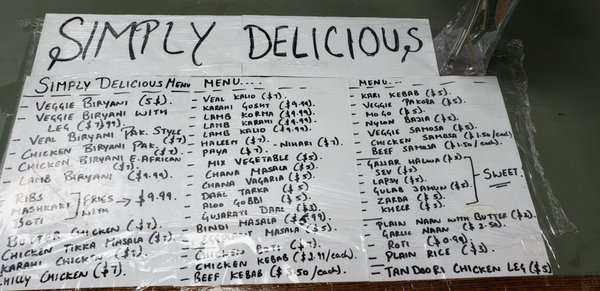 SIMPLY DELICIOUS
SIMPLY DELICIOUS MENU
- VEGGIE BIRYANI (5$).
- VEGGIE BIRYANI WITH
LEG ($7.99).
- VEAL BIRYANI PAK. STYLE
- CHICKEN BIRYANI PAK. ($7)
- CHICKEN BIRYANI E.AFRICAN
($7).
- LAMB BIRYANI ($9.99).
RIBS
MASHKAKI
BOTI
FRIES WITH → $9.99.
BUTTER CHICKEN ($7).
CHICKEN TIKKA MASALA ($7).
KARAHI CHICKEN ($7).
CHILLY CHICKEN ($7).
MENU....
- VEAL KALIO ($7).
- KARAHI GOSHT ($9.99).
- LAMB KORMA ($9.99).
- LAMB KARAHI ($9.99).
- LAMB KALIO ($9.99).
- HALEEM ($7). - NIHARI ($7).
- PAYA ($7).
- MIX VEGETABLE ($5).
- CHANA MASALA ($5).
- CHANA VAGARIA ($5).
- DAAL TARKA ($5).
- ALOO GOBBI ($5).
- GUJARATI DAAL ($3).
- BINDI MASALA ($5.99).
MASALA ($5).
($7).
- CHICKEN KEBAB ($2.99/each).
- BEEF KEBAB ($1.50/each).
MENU....
- KARI KEBAB ($5).
- VEGGIE PAKORA ($5).
- MOGO ($5).
- NYLON BAJIA ($5).
- VEGGIE SAMOSA ($5).
- CHICKEN SAMOSA ($1.50/each).
- BEEF SAMOSA ($1.50/each).
- GAJJAR HALWA ($5).
- SEV ($5)
- LAPSY ($5).
- GULAB JAMUN ($5).
- ZARDA ($5).
- KHEER ($5).
SWEET.
- PLAIN NAAN WITH BUTTER ($2)
- GARLIC NAAN ($2.50).
- ROTI ($0.99).
- PLAIN RICE ($3).
- TANDOORI CHICKEN LEG ($5)